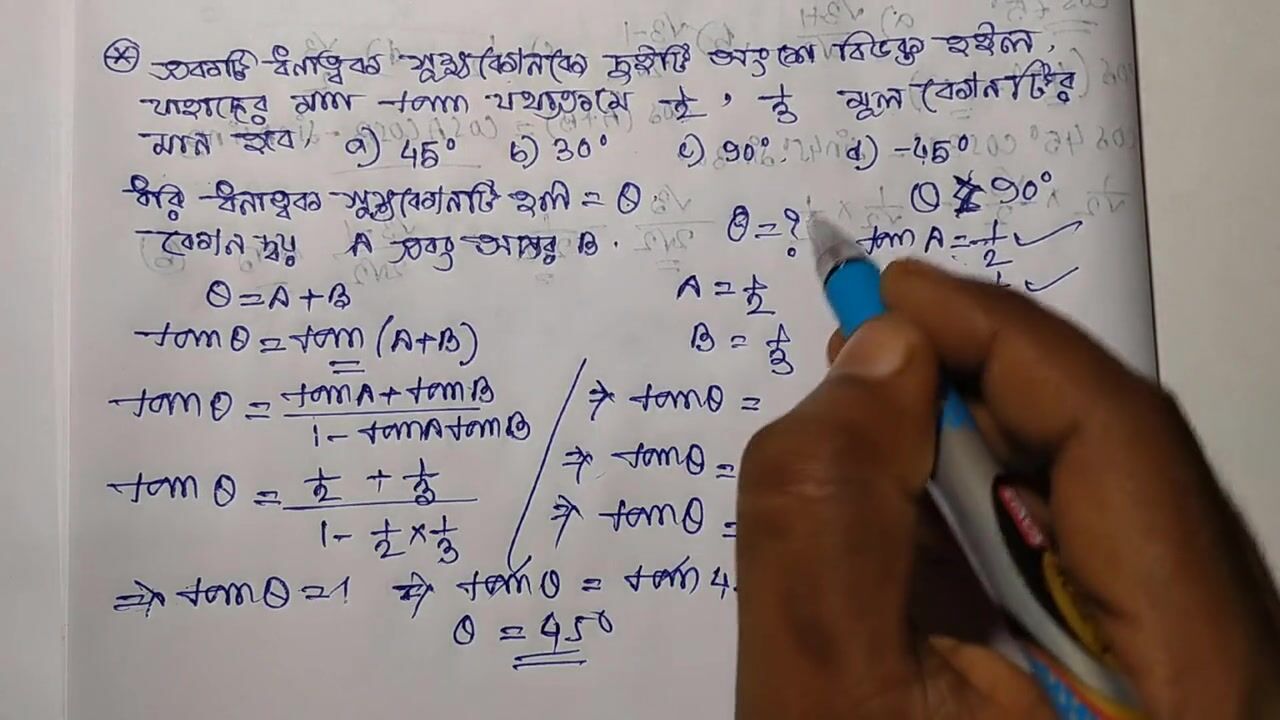 একটি ধনাত্মক সূক্ষ্মকোণকে দুইটি অংশে বিভক্ত হইল,
যাহাদের মান tan যথাক্রমে 1/2, 1/3 মূল কোণটির
মান হবে, a) 45° b) 30° c) 90°. d) -45°
ধরি ধনাত্মক সূক্ষ্মকোণটি হল = θ
θ 90°
কোণ দ্বয় A এবং অপর B.
θ = ?
tan A = 1/2
θ = A + B
A = 1/2
tan θ = tan (A+B)
B = 1/3
tan θ = tanA + tanB / 1 - tanA tanB
⇒ tan θ =
⇒ tan θ =
tan θ = 1/2 + 1/3 / 1 - 1/2 × 1/3
⇒ tan θ =
⇒ tan θ = 1 ⇒ tan θ = tan 4
θ = 45°